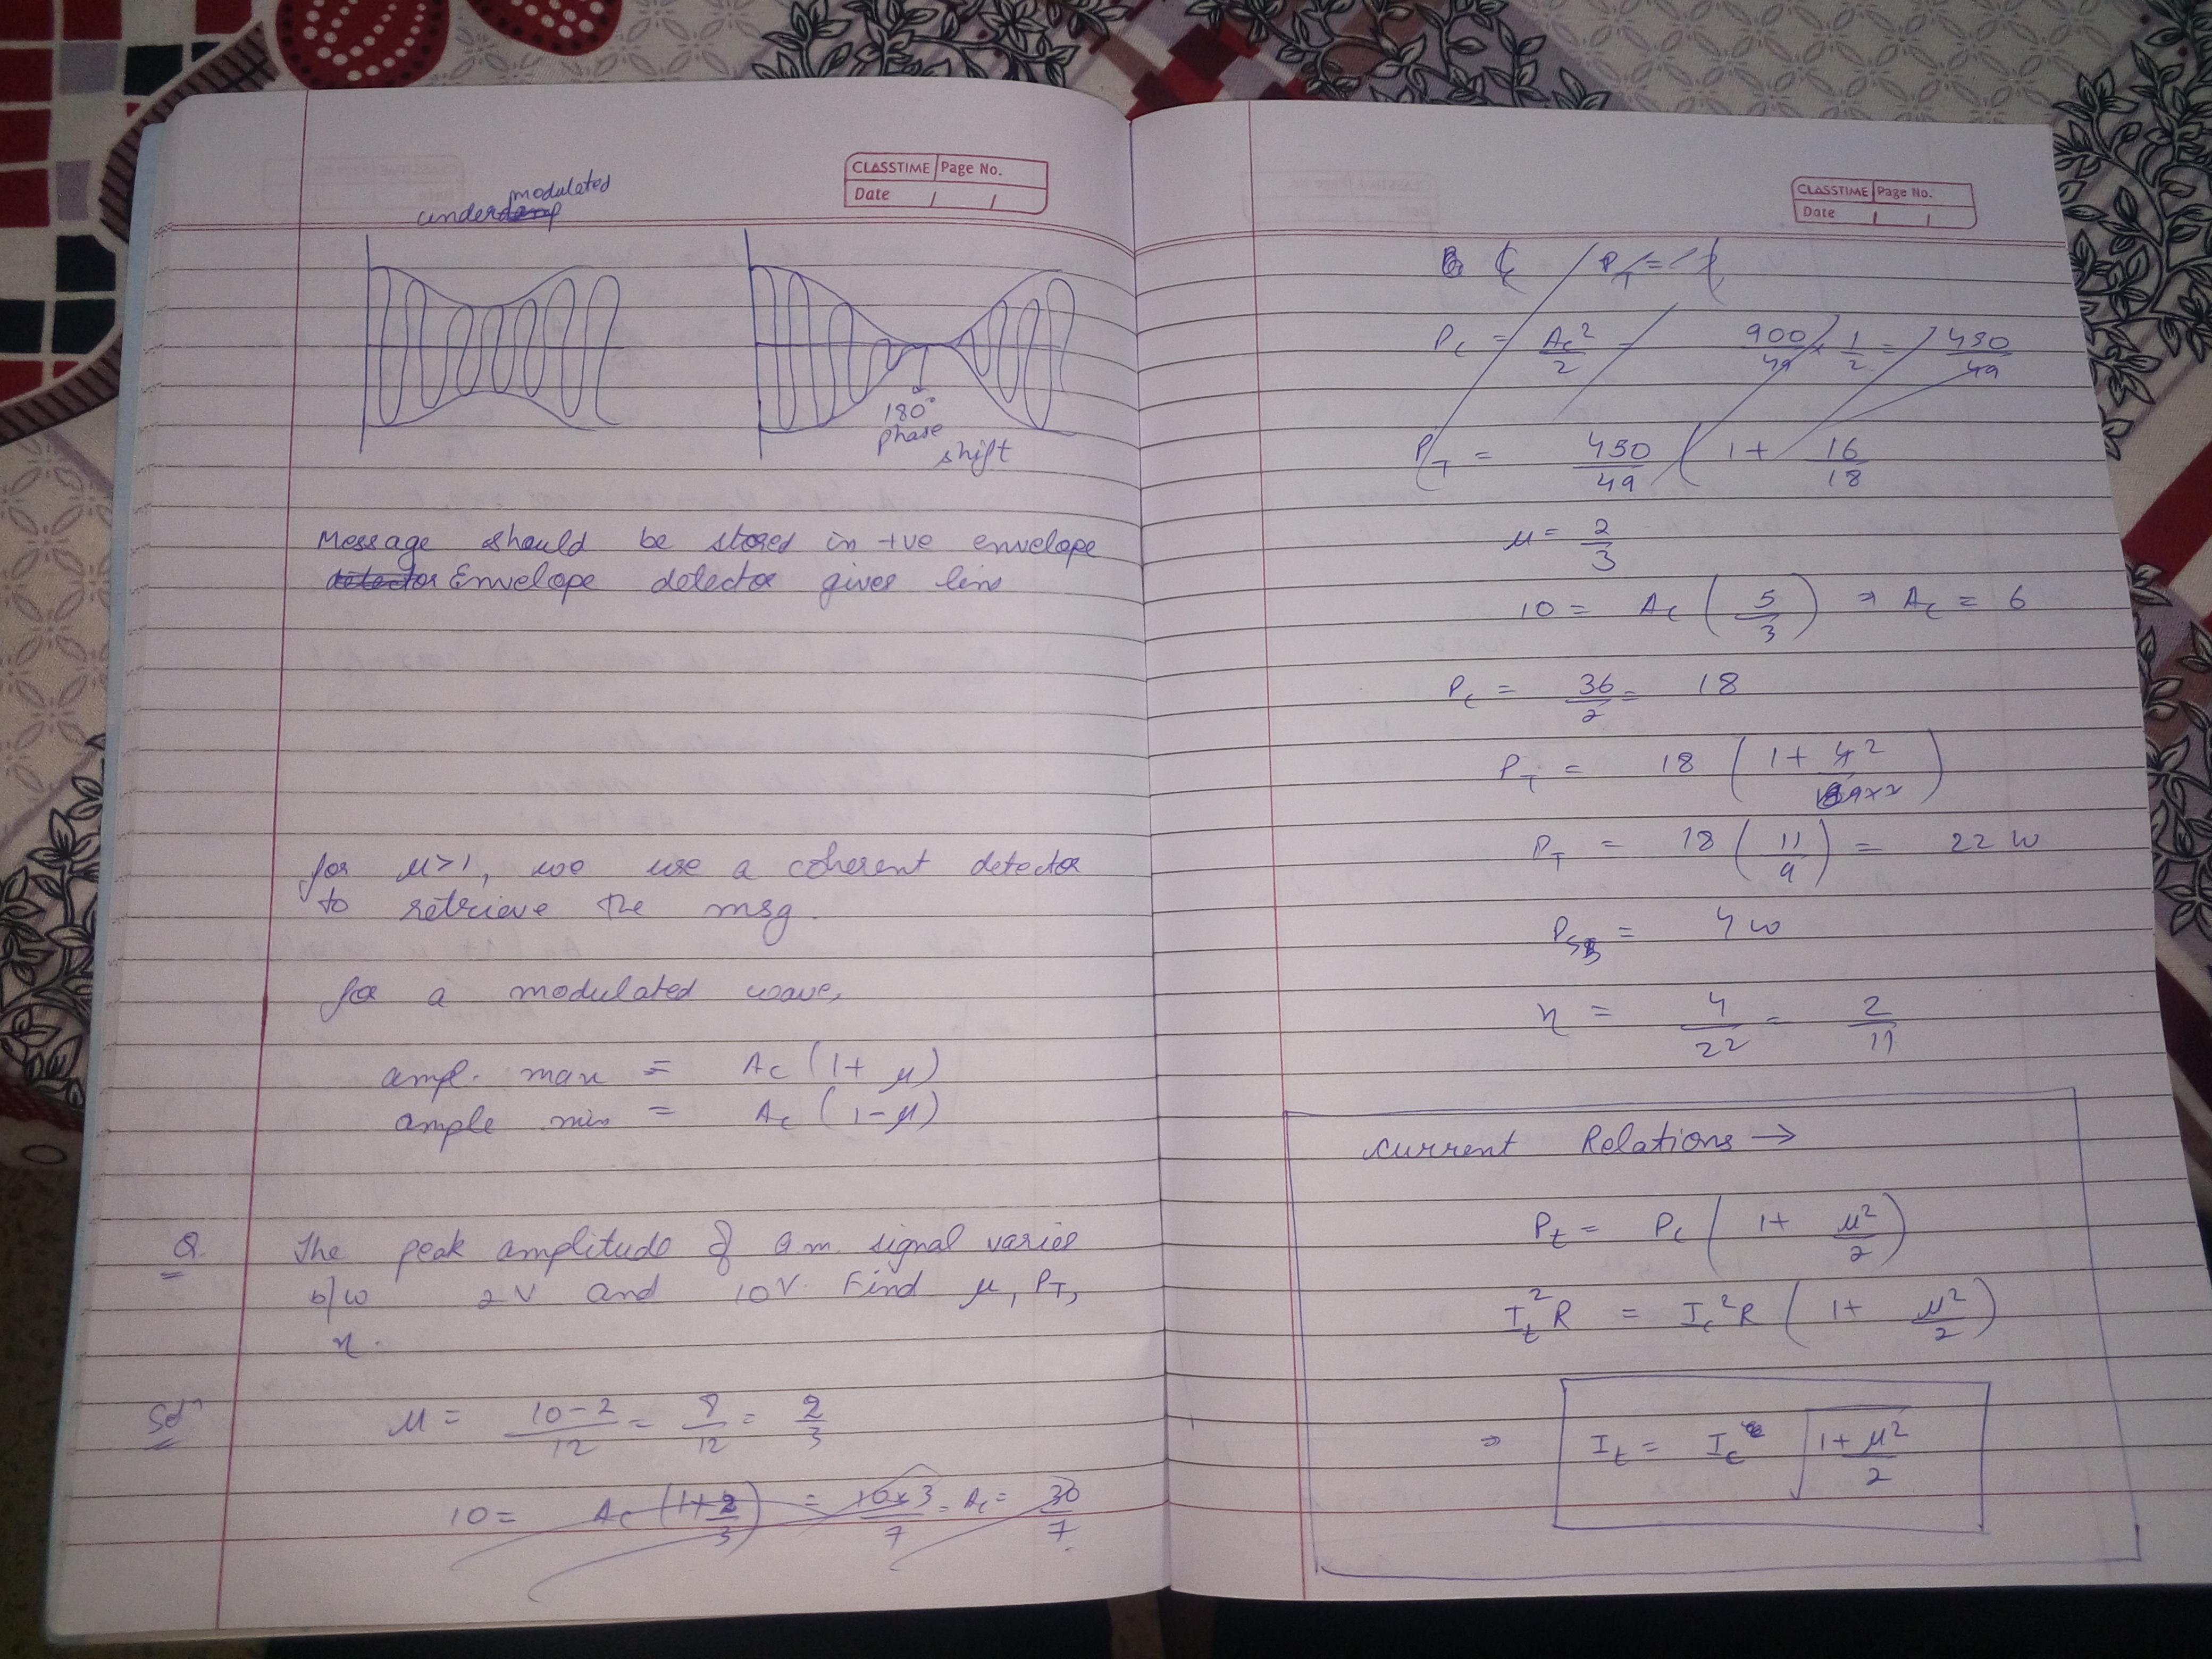 CLASSTIME Page No.
Date / /
modulated
underdamp
180°
phase
shift
Message should be stored in +ve envelope
detector Envelope detector gives
for μ>1, we use a coherent detector
to retrieve the msg.
for a modulated wave,
ampl. max = Ac (1+ μ)
ample min = Ac (1-μ)
Q. The peak amplitude of a.m. signal varies
b/w 2V and 10V. Find μ, PT,
η.
Solⁿ μ = 10-2/12 = 8/12 = 2/3
10 = Ac (1+2/3) = 10x3/7 = Ac = 30/7
CLASSTIME Page No.
Date / /
PT =
Pc = Ac²/2 = 900/49 x 1/2 = 450/49
PT = 450/49 ( 1+ 16/18
μ = 2/3
10 = Ac (5/3) ⇒ Ac = 6
Pc = 36/2 = 18
PT = 18 (1+ 4²/9x2)
PT = 18 (11/9) = 22 W
PSB = 4 W
η = 4/22 = 2/11
Current Relations →
Pt = Pc (1+ μ²/2)
It²R = Ic²R (1+ μ²/2)
⇒ It = Ic √1+μ²/2